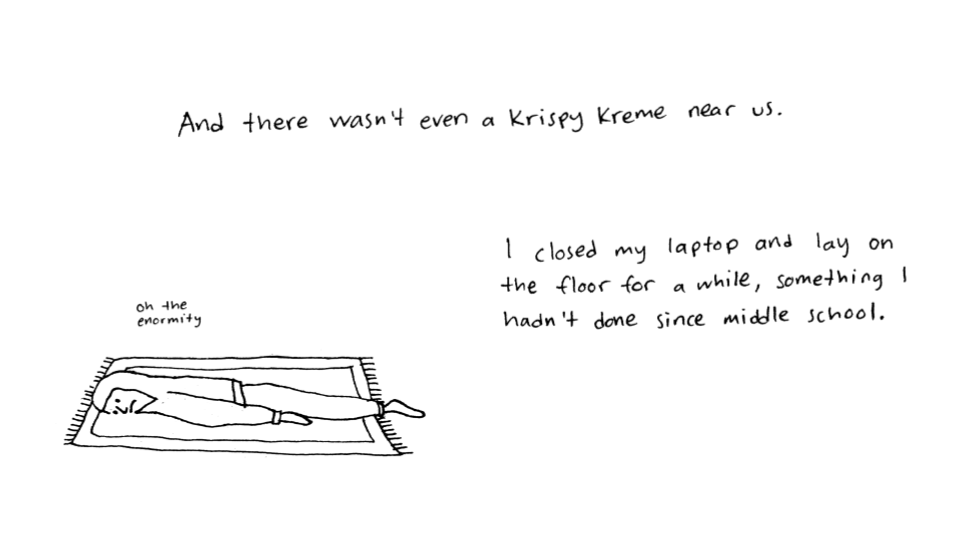 And there wasn't even a Krispy Kreme near us.
I closed my laptop and lay on
the floor for a while, something I
hadn't done since middle school.
oh the
enormity